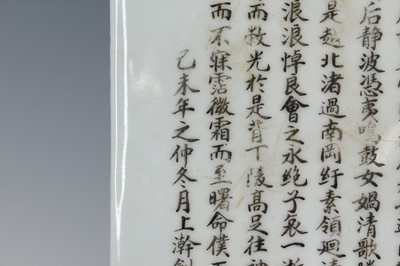 后静波憑夷鳴鼓女媧清歌
是越北渚過南岡紆素領迴
浪浪悼良會之永絶兮哀一
而蔽光於是背下陵高足往神
而不寐霑微霜而至曙命僕
己未年之仲冬月上澣